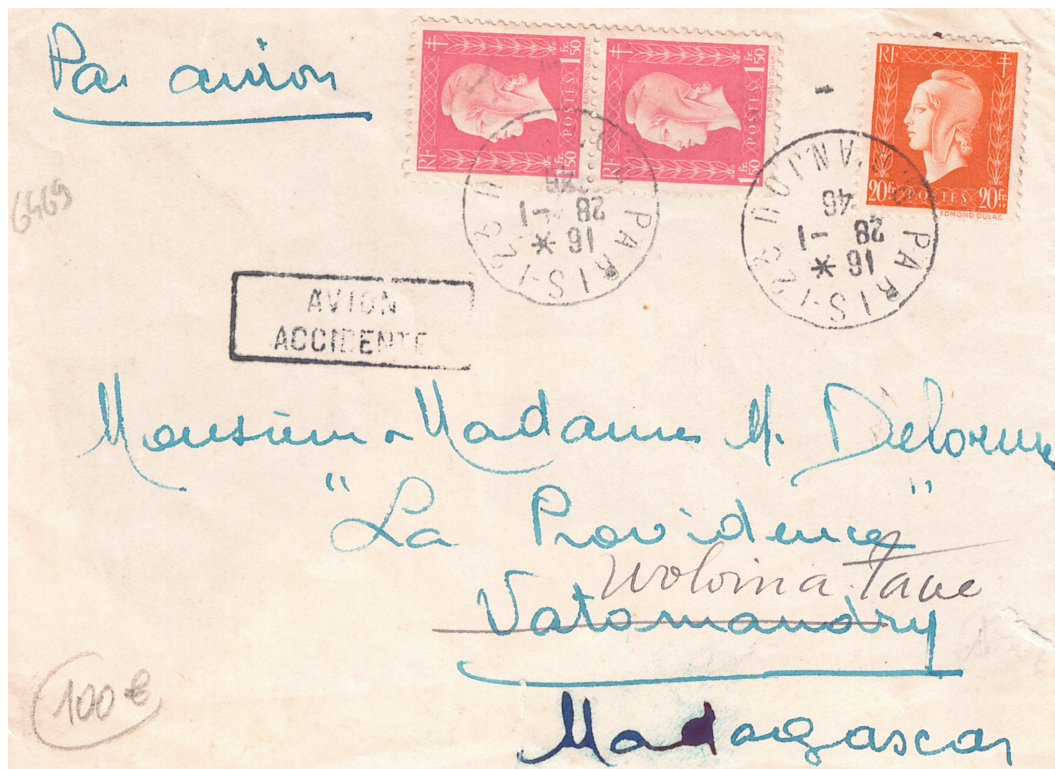 Par avion
RF POSTES 1F50 1F50
RF POSTES 1F50 1F50
RF
20F POSTES 20F
EDMOND DULAC
PARIS-123 R. D'ANJOU
16 *
28 -1
46
PARIS-123 R. D'ANJOU
16 *
28 -1
46
6469
AVION
ACCIDENTE
Monsieur Madame M. Delorme
"La Providence"
Tave
Vatomandry
Madagascar
100€